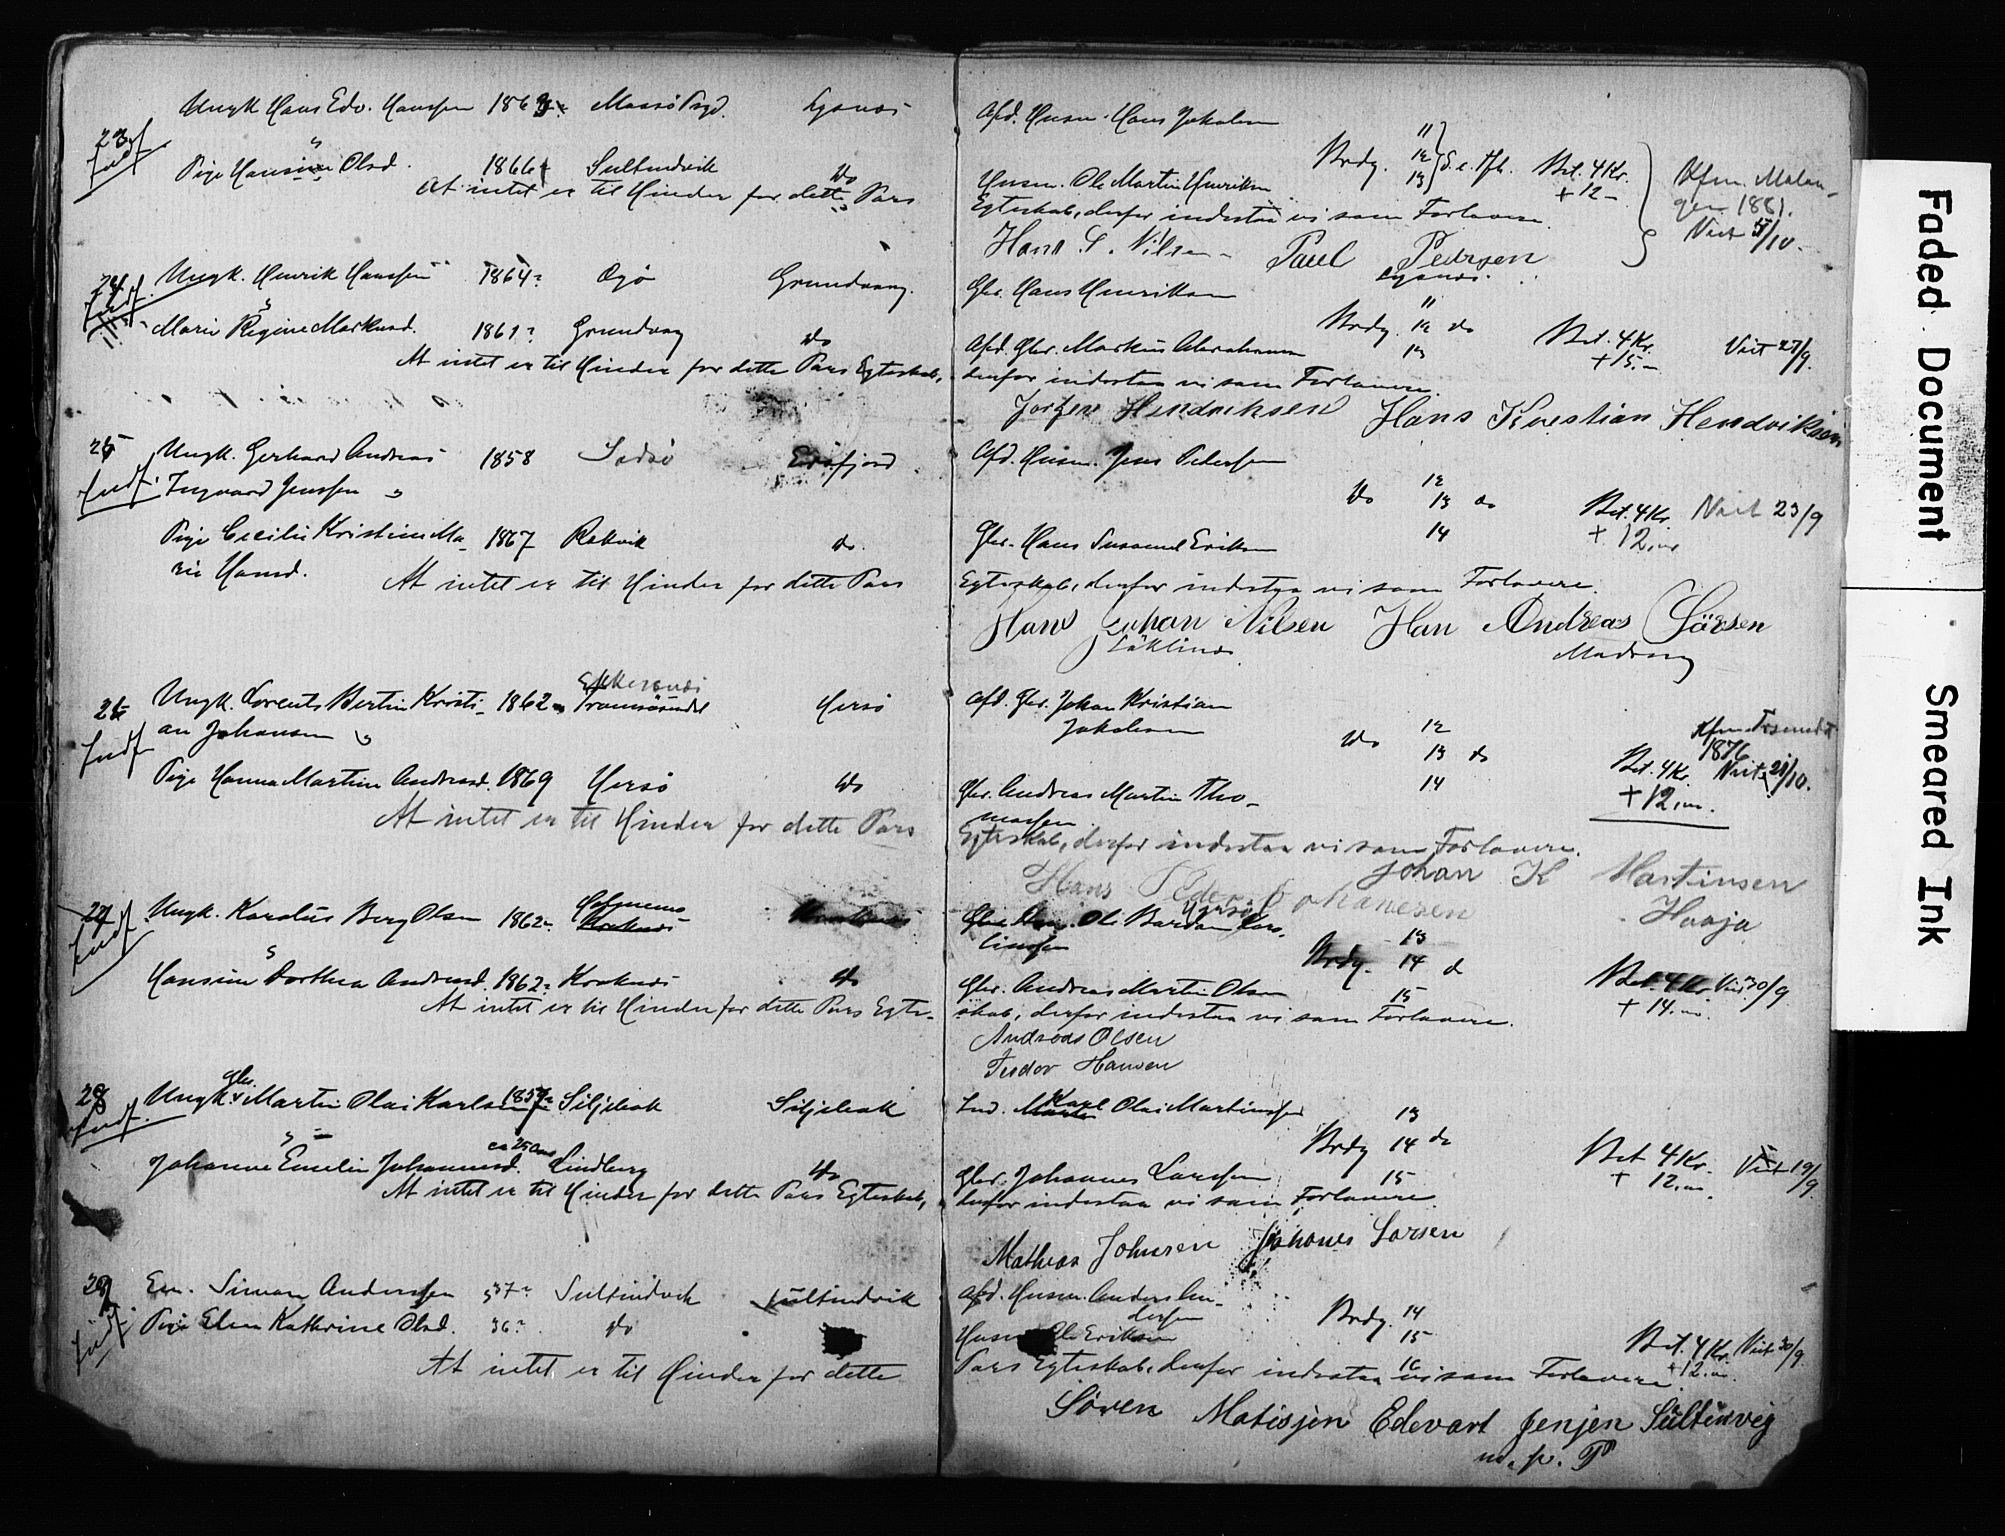 23
Indf.
Ungk Hans Edv. Hanssen 1863 Maasö Prgd. Lysnæs
Pige Hansine Olsd. 1866 Sultindvik do
At intet er til Hinder for dette Pars
24
Indf.
Ungk. Henrik Hanssen 1864 Grundvaag.
Marie Regine Markusd. 1861 Grundvag do
At intet er til Hinder for dette Pars Egteskab,
25
Indf.
Ungk. Gerhard Andreas 1858 Eidsfjord
Ingvard Jenssen
Pige Cecilie Kristine Ma- 1867 Rakvik do.
rie Hansd.
At intet er til Hinder for dette Pars
26
Indf.
Ungk. Lorents Bertin Kristi- 1862 Tromsösundet Hersö
an Johansen
Pige Hanna Martine Andreasd. 1869 Hersö do
At intet er til Hinder for dette Pars
27
Indf.
Ungk. Karolus Berg Olsen 1862 Kraknæs
Hansine Dorthea Andreasd. 1862 Kraknæs do
At intet er til Hinder for dette Pars Egte-
28
Indf.
Gbr.
Ungk. Martin Olai Karlsen 1857 Siljebak Siljebak
ca 25 Aar
Johanne Emelie Johannesd. Lindberg do
At intet er til Hinder for dette Pars Egteskab,
29
Indf.
Em. Simon Anderssen 37 Sultindvik Sultindvik
Pige Elen Kathrine Olsd. 36 do
At intet er til Hinder for dette
Afd. Husm. Hans Jakobsen
Brdg. 11 12 13 Bet. 4 Kr. + 12 -
Husm. Ole Martin Henriksen
Kfm. Malan-
gen 1881.
Viet 5/10.
Egteskab, derfor indestaa vi som Forlovere.
Hans Nilsen Paul Pedrsen
Lysnæs.
Gbr. Hans Henriksen
Brdg. 11 12 do 13
Bet. 4 Kr. + 15.- Viet 27/9.
Afd. Gbr. Markus Abrahamsen
derfor indestaa vi som Forlovere
Jörgen Hendriksen Hans Krestian Hendriksen
Afd. Husm. Jens Pedersen
do 12 13 do 14
Bet. 4 Kr. + 12 Viet 23/9
Gbr. Hans Susamel Eriksen
Egteskab, derfor indestaa vi som Forlovere.
Hans Johan Nilsen Han Andreas Lörsen
Afd. Gbr. Johan Kristian
Jakobsen
do 12 13 do 14
1876
Bet. 4 Kr. Viet 21/10.
+ 12
Gbr. Andreas Martin Tho-
massen
Egteskab, derfor indestaa vi som Forlovere.
Johan K Martinsen
Hans Peder Johanesen Haaja
Hersö
Ole Bardon
13
Brdg. 14 do
15
Gbr. Andreas Martin Olsen
Bet. 4 Kr. Viet 30/9
+ 14.
skab, derfor indestaa vi som Forlovere.
Andreas Olsen
Teodor Hansen
Ind. Karl Olai Martinssen
13
Brdg 14 do
15
Bet 4 Kr. Viet 19/9
+ 12.
Gbr. Johannes Larssen
derfor indestaa vi som Forlovere
Mathias Johnsen Johanes Larsen
Afd. Husm. Anders An-
dersen
Brdg. 14
15
16
Husm. Ole Eriksen
Bet. 4 Kr. Viet 30/9
+ 12.
Pars Egteskab, derfor indestaa vi som Forlovere.
Sören Matisjen Edevart Jenjen Sultinvig
m. p. P
Faded Document
Smeared Ink